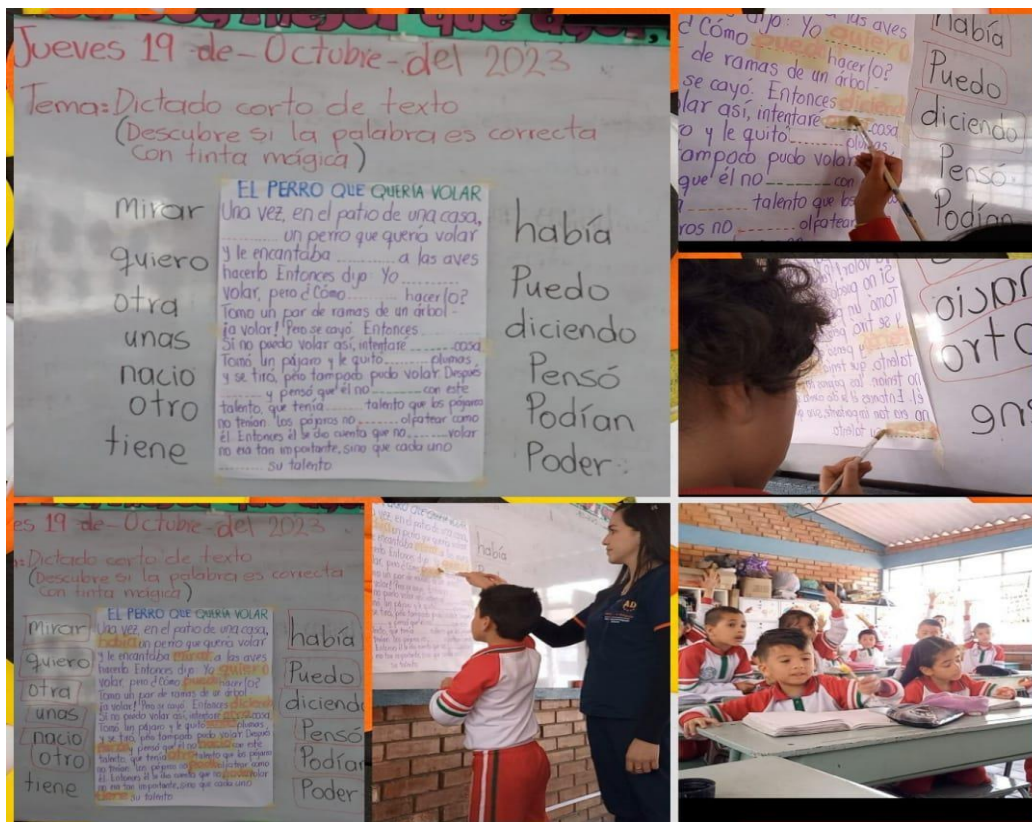 Jueves 19 de-Octubre-del 2023
Tema: Dictado corto de texto
(Descubre si la palabra es correcta
con tinta mágica)
Mirar
quiero
otra
unas
nacio
otro
tiene
EL PERRO QUE QUERIA VOLAR
Una vez, en el patio de una casa,
un perro que quería volar
y le encantaba a las aves
hacerlo Entonces dijo: Yo
volar, pero ¿Cómo hacerlo?
Tomo un par de ramas de un árbol -
¡a volar! Pero se cayó. Entonces
Si no puedo volar así, intentaré cosa
Tomó un pájaro y le quitó plumas
y se tiró, pero tampoco pudo volar. Después
y pensó que él no con este
talento, que tenía talento que los pájaros
no tenían. Los pájaros no olfatear como
él. Entonces él se dio cuenta que no volar
no era tan importante, sino que cada uno
su talento
había
Puedo
diciendo
Pensó
Podían
Poder
dijo: Yo quiero
las aves
¿Cómo puedo hacerlo?
de ramas de un árbol -
se cayó. Entonces diciendo
lar así, intentaré cosa
o y le quitó plumas
ampoco pudo volar
que él no con
talento que los
ros no olfatear
había
Puedo
diciendo
Pensó
Podían
es 19 de-Octubre-del 2023
Dictado corto de texto
(Descubre si la palabra es correcta
con tinta mágica)
Mirar
quiero
otra
unas
nacio
otro
tiene
EL PERRO QUE QUERIA VOLAR
Una vez, en el patio de una casa,
había un perro que quería volar
y le encantaba mirar a las aves
hacerlo Entonces dijo: Yo quiero
volar, pero ¿Cómo puedo hacerlo?
Tomo un par de ramas de un árbol
¡a volar! Pero se cayó. Entonces diciendo
Si no puedo volar así, intentaré cosa
Tomó un pájaro y le quitó plumas
y se tiró, pero tampoco pudo volar. Después
y pensó que él no nacio con este
talento, que tenía otro talento que los pájaros
no tenían. Los pájaros no olfatear como
él. Entonces él se dio cuenta que no volar
no era tan importante, sino que cada uno
tiene su talento
había
Puedo
diciendo
Pensó
Podían
Poder
había